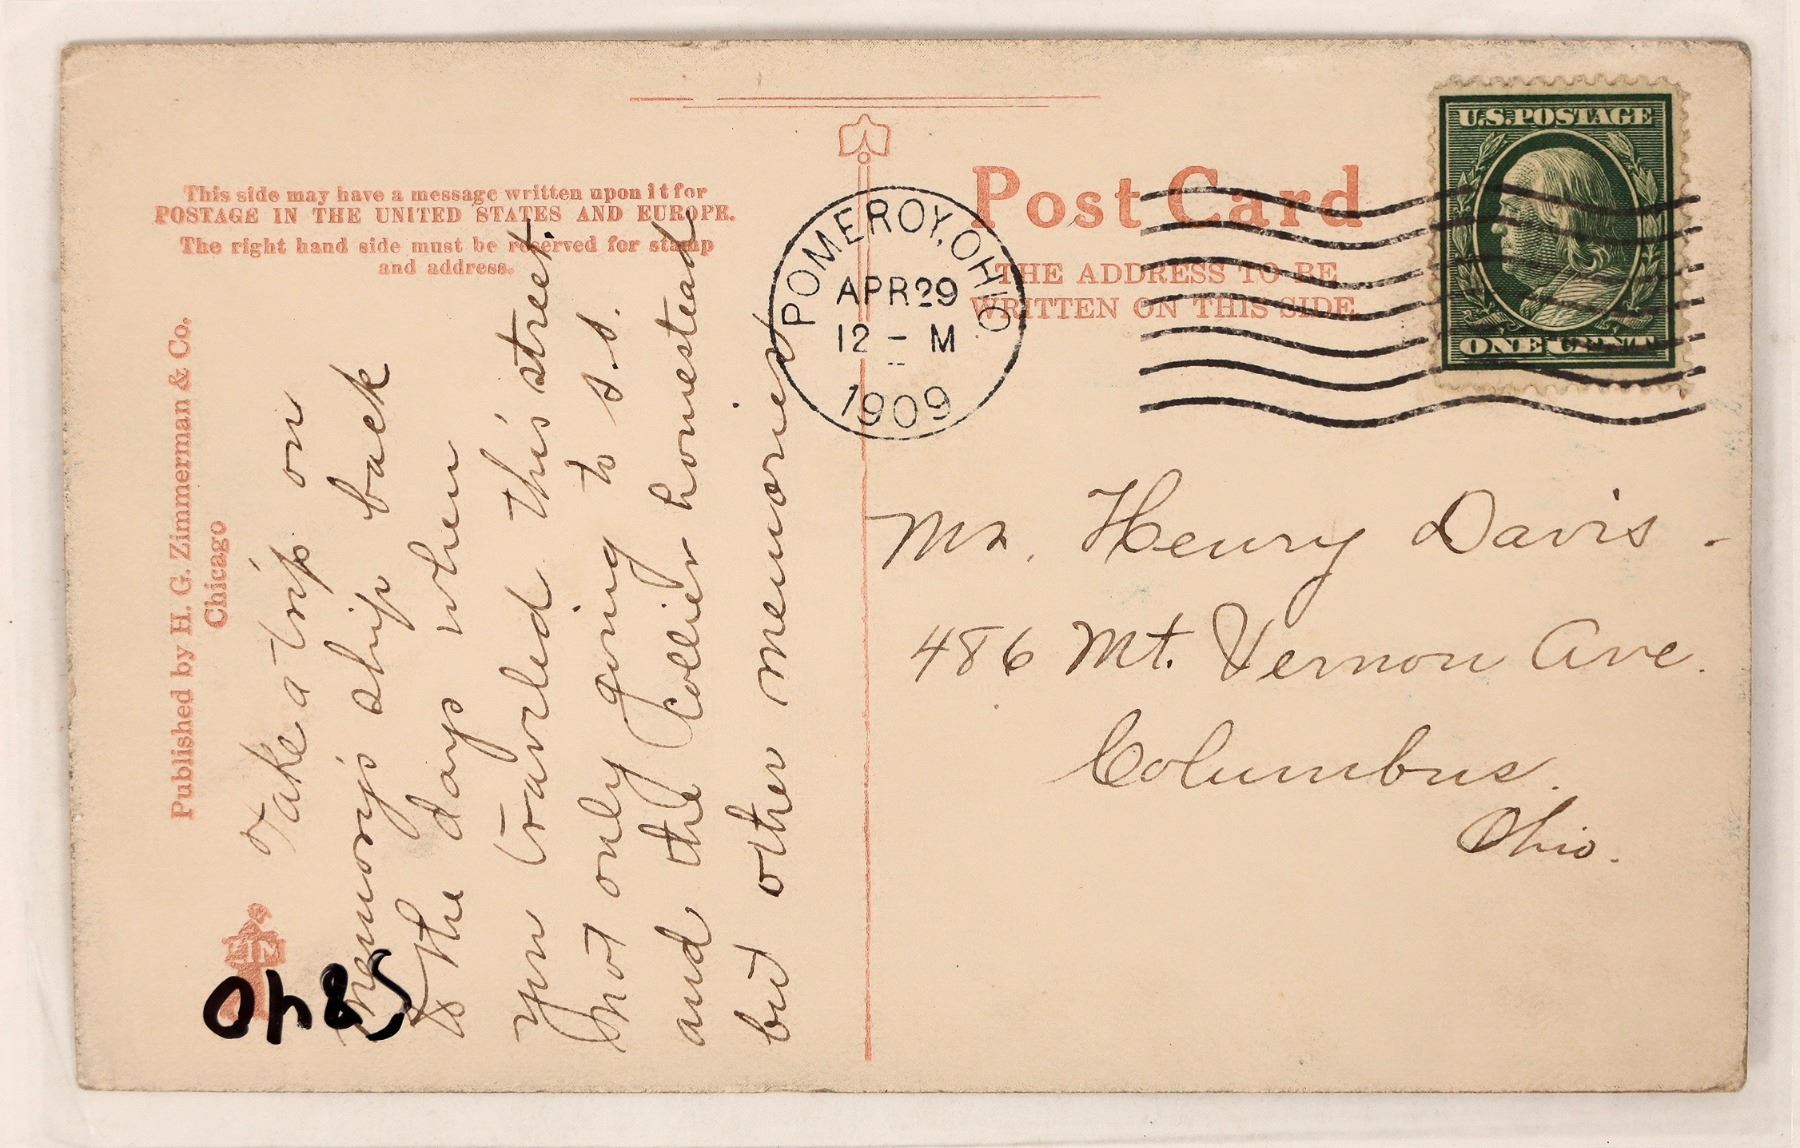 This side may have a message written upon it for
POSTAGE IN THE UNITED STATES AND EUROPE.
The right hand side must be reserved for stamp
and address.
Published by H. G. Zimmerman & Co.
Chicago
ZIM
Take a trip on
memory's ship back
to the days when
you traveled this street.
not only going to s. s.
and the Collier homestead
but other memories
POMEROY, OHIO
APR 29
12 - M
1909
Post Card
THE ADDRESS TO BE
WRITTEN ON THIS SIDE
U.S. POSTAGE
ONE CENT
Mr. Henry Davis -
486 Mt. Vernon Ave.
Columbus.
Ohio.